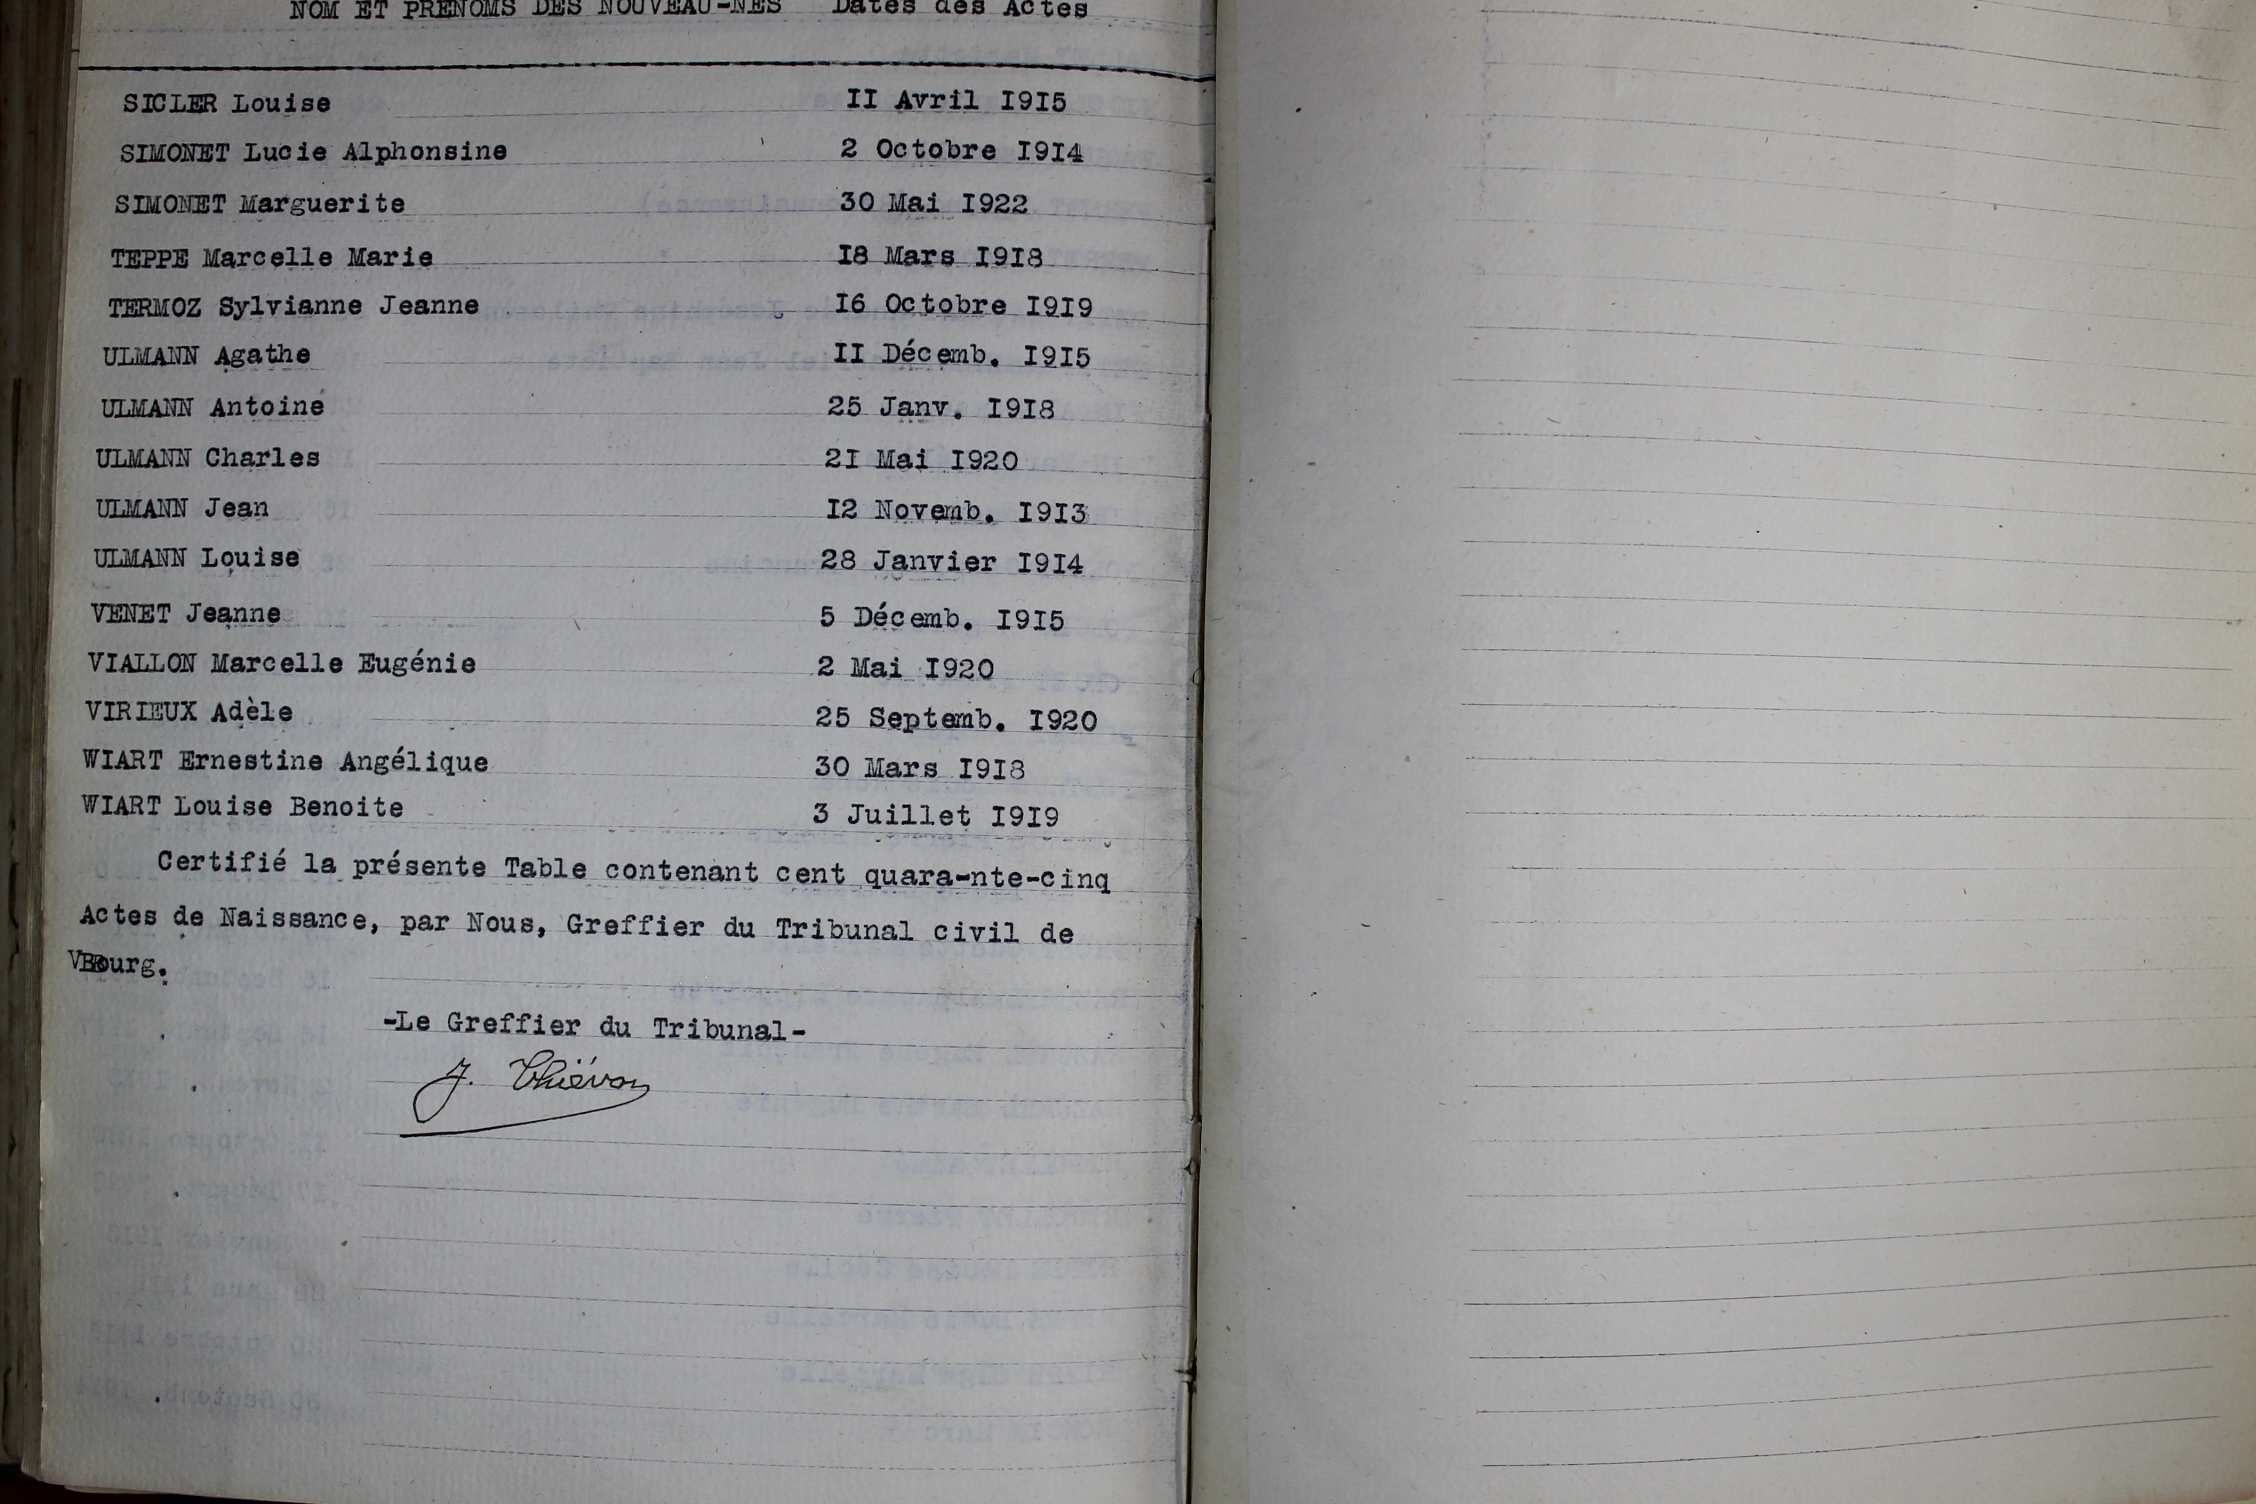 NOM ET PRENOMS DES NOUVEAU-NES Dates des Actes
SICLER Louise II Avril I9I5
SIMONET Lucie Alphonsine 2 Octobre I9I4
SIMONET Marguerite 30 Mai I922
TEPPE Marcelle Marie I8 Mars I9I8
TERMOZ Sylvianne Jeanne I6 Octobre I9I9
ULMANN Agathe II Décemb. I9I5
ULMANN Antoine 25 Janv. I9I8
ULMANN Charles 2I Mai I920
ULMANN Jean I2 Novemb. I9I3
ULMANN Louise 28 Janvier I9I4
VENET Jeanne 5 Décemb. I9I5
VIALLON Marcelle Eugénie 2 Mai I920
VIRIEUX Adèle 25 Septemb. I920
WIART Ernestine Angélique 30 Mars I9I8
WIART Louise Benoite 3 Juillet I9I9
Certifié la présente Table contenant cent quara-nte-cinq
Actes de Naissance, par Nous, Greffier du Tribunal civil de
Bourg.
-Le Greffier du Tribunal-
J. Thiévon